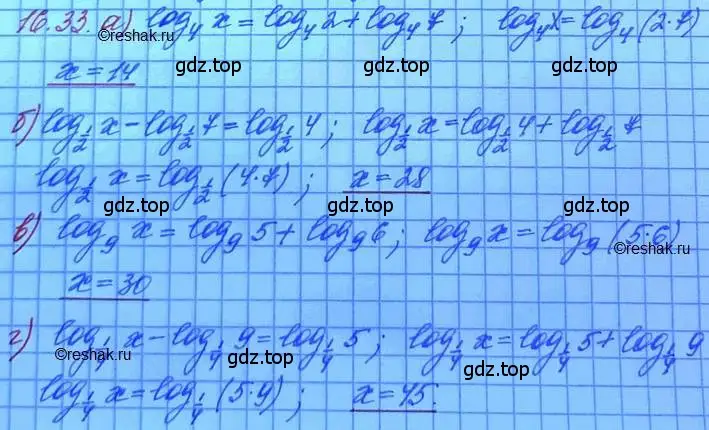 16.33. а) log₄ x = log₄ 2 + log₄ 7 ; log₄ x = log₄ (2·7)
x = 14 gdz.top gdz.top gdz.top
б) log_{1/2} x − log_{1/2} 7 = log_{1/2} 4 ; log_{1/2} x = log_{1/2} 4 + log_{1/2} 7
log_{1/2} x = log_{1/2} (4·7) ; x = 28
gdz.top gdz.top gdz.top
в) log₉ x = log₉ 5 + log₉ 6 ; log₉ x = log₉ (5·6)
x = 30 gdz.top gdz.top
г) log_{1/4} x − log_{1/4} 9 = log_{1/4} 5 ; log_{1/4} x = log_{1/4} 5 + log_{1/4} 9
gdz.top gdz.top gdz.top
log_{1/4} x = log_{1/4} (5·9) ; x = 45.
gdz.top gdz.top gdz.top